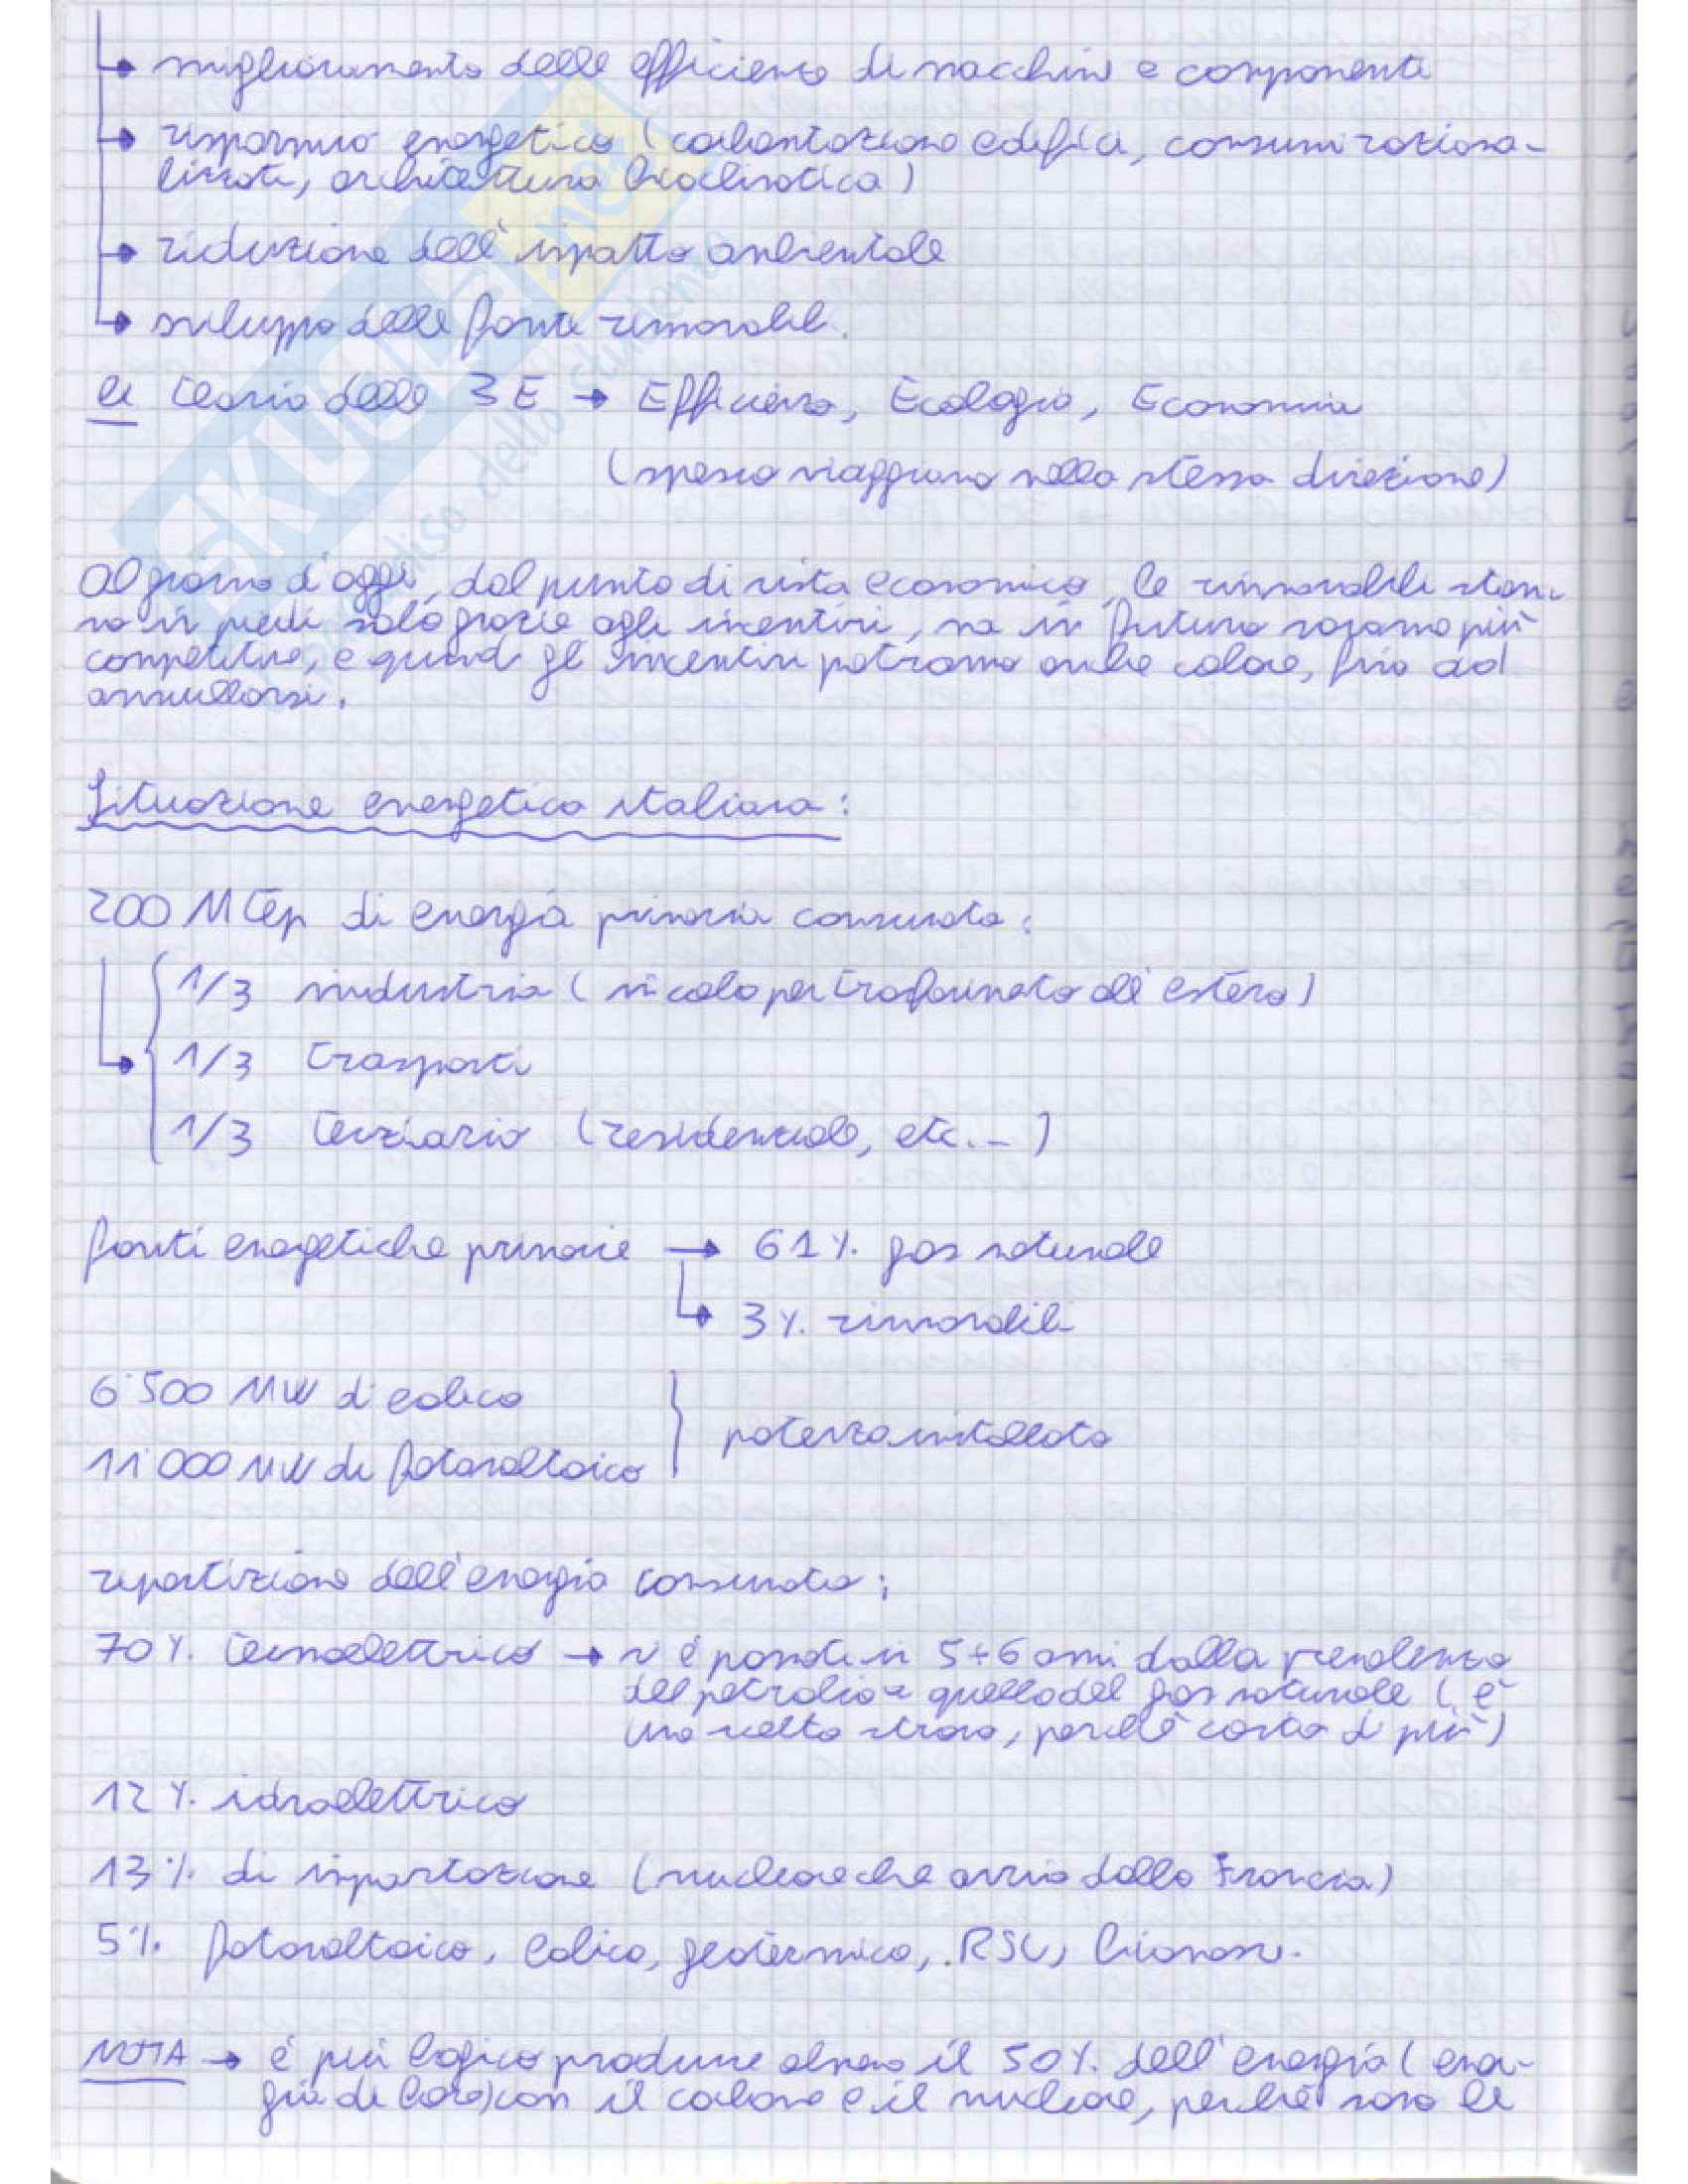 → miglioramento delle efficienze di macchine e componenti
→ risparmio energetico (coibentazione edifici, consumi raziona-
lizzati, architettura bioclimatica)
→ riduzione dell'impatto ambientale
→ sviluppo delle fonti rinnovabili.
es teoria delle 3E → Efficienza, Ecologia, Economia
(spesso viaggiano nella stessa direzione)
Al giorno d'oggi, dal punto di vista economico, le rinnovabili stan-
no in piedi solo grazie agli incentivi, ma in futuro saranno più
competitive, e quindi gli incentivi potranno anche calare, fino ad
annullarsi.
Situazione energetica italiana:
200 MTep di energia primaria consumata:
1/3 industria (in calo per trasferimento all'estero)
→ 1/3 trasporti
1/3 terziario (residenziale, etc...)
fonti energetiche primarie → 61% gas naturale
→ 3% rinnovabili
6'500 MW di eolico
potenza installata
11'000 MW di fotovoltaico
ripartizione dell'energia consumata:
70% termoelettrico → si è passati in 5÷6 anni dalla prevalenza
del petrolio a quella del gas naturale (è
una scelta strana, perché costa di più)
12% idroelettrico
13% di importazione (nucleare che arriva dalla Francia)
5% fotovoltaico, eolico, geotermico, RSU, biomasse.
NOTA → è più logico produrre almeno il 50% dell'energia (ener-
gia di base) con il carbone e il nucleare, perché sono le
SKUOLA.net
paradiso dello studente